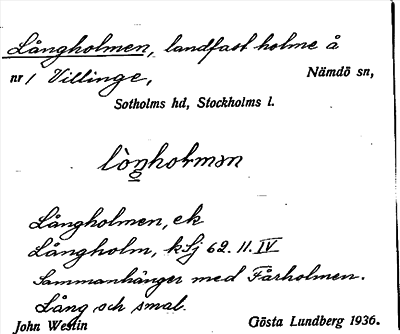 Långholmen, landfast holme å
nr 1 Villinge, Nämdö sn,
Sotholms hd, Stockholms l.
lòŋholmən
Långholmen, ek
Långholm, kSj 62. 11. IV
Sammanhänger med Fårholmen.
Lång och smal.
John Westin Gösta Lundberg 1936.